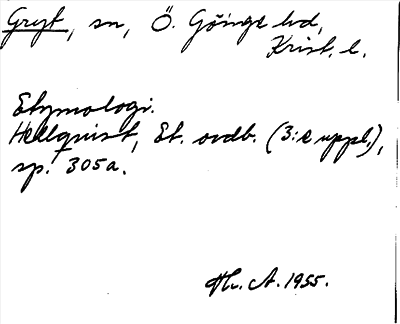 Gryt, sn, Ö. Göinge hd,
Krist. l.
Etymologi.
Hellquist, Et. ordb. (3:e uppl.),
sp. 305a.
Th. A. 1955.